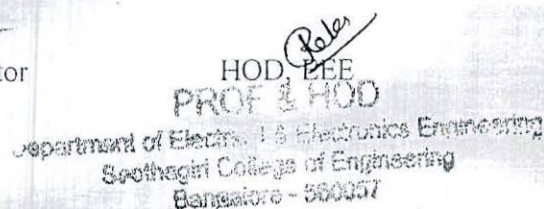 tor HOD, EEE
PROF & HOD
Department of Electrical & Electronics Engineering
College of Engineering
Bangalore - 560057